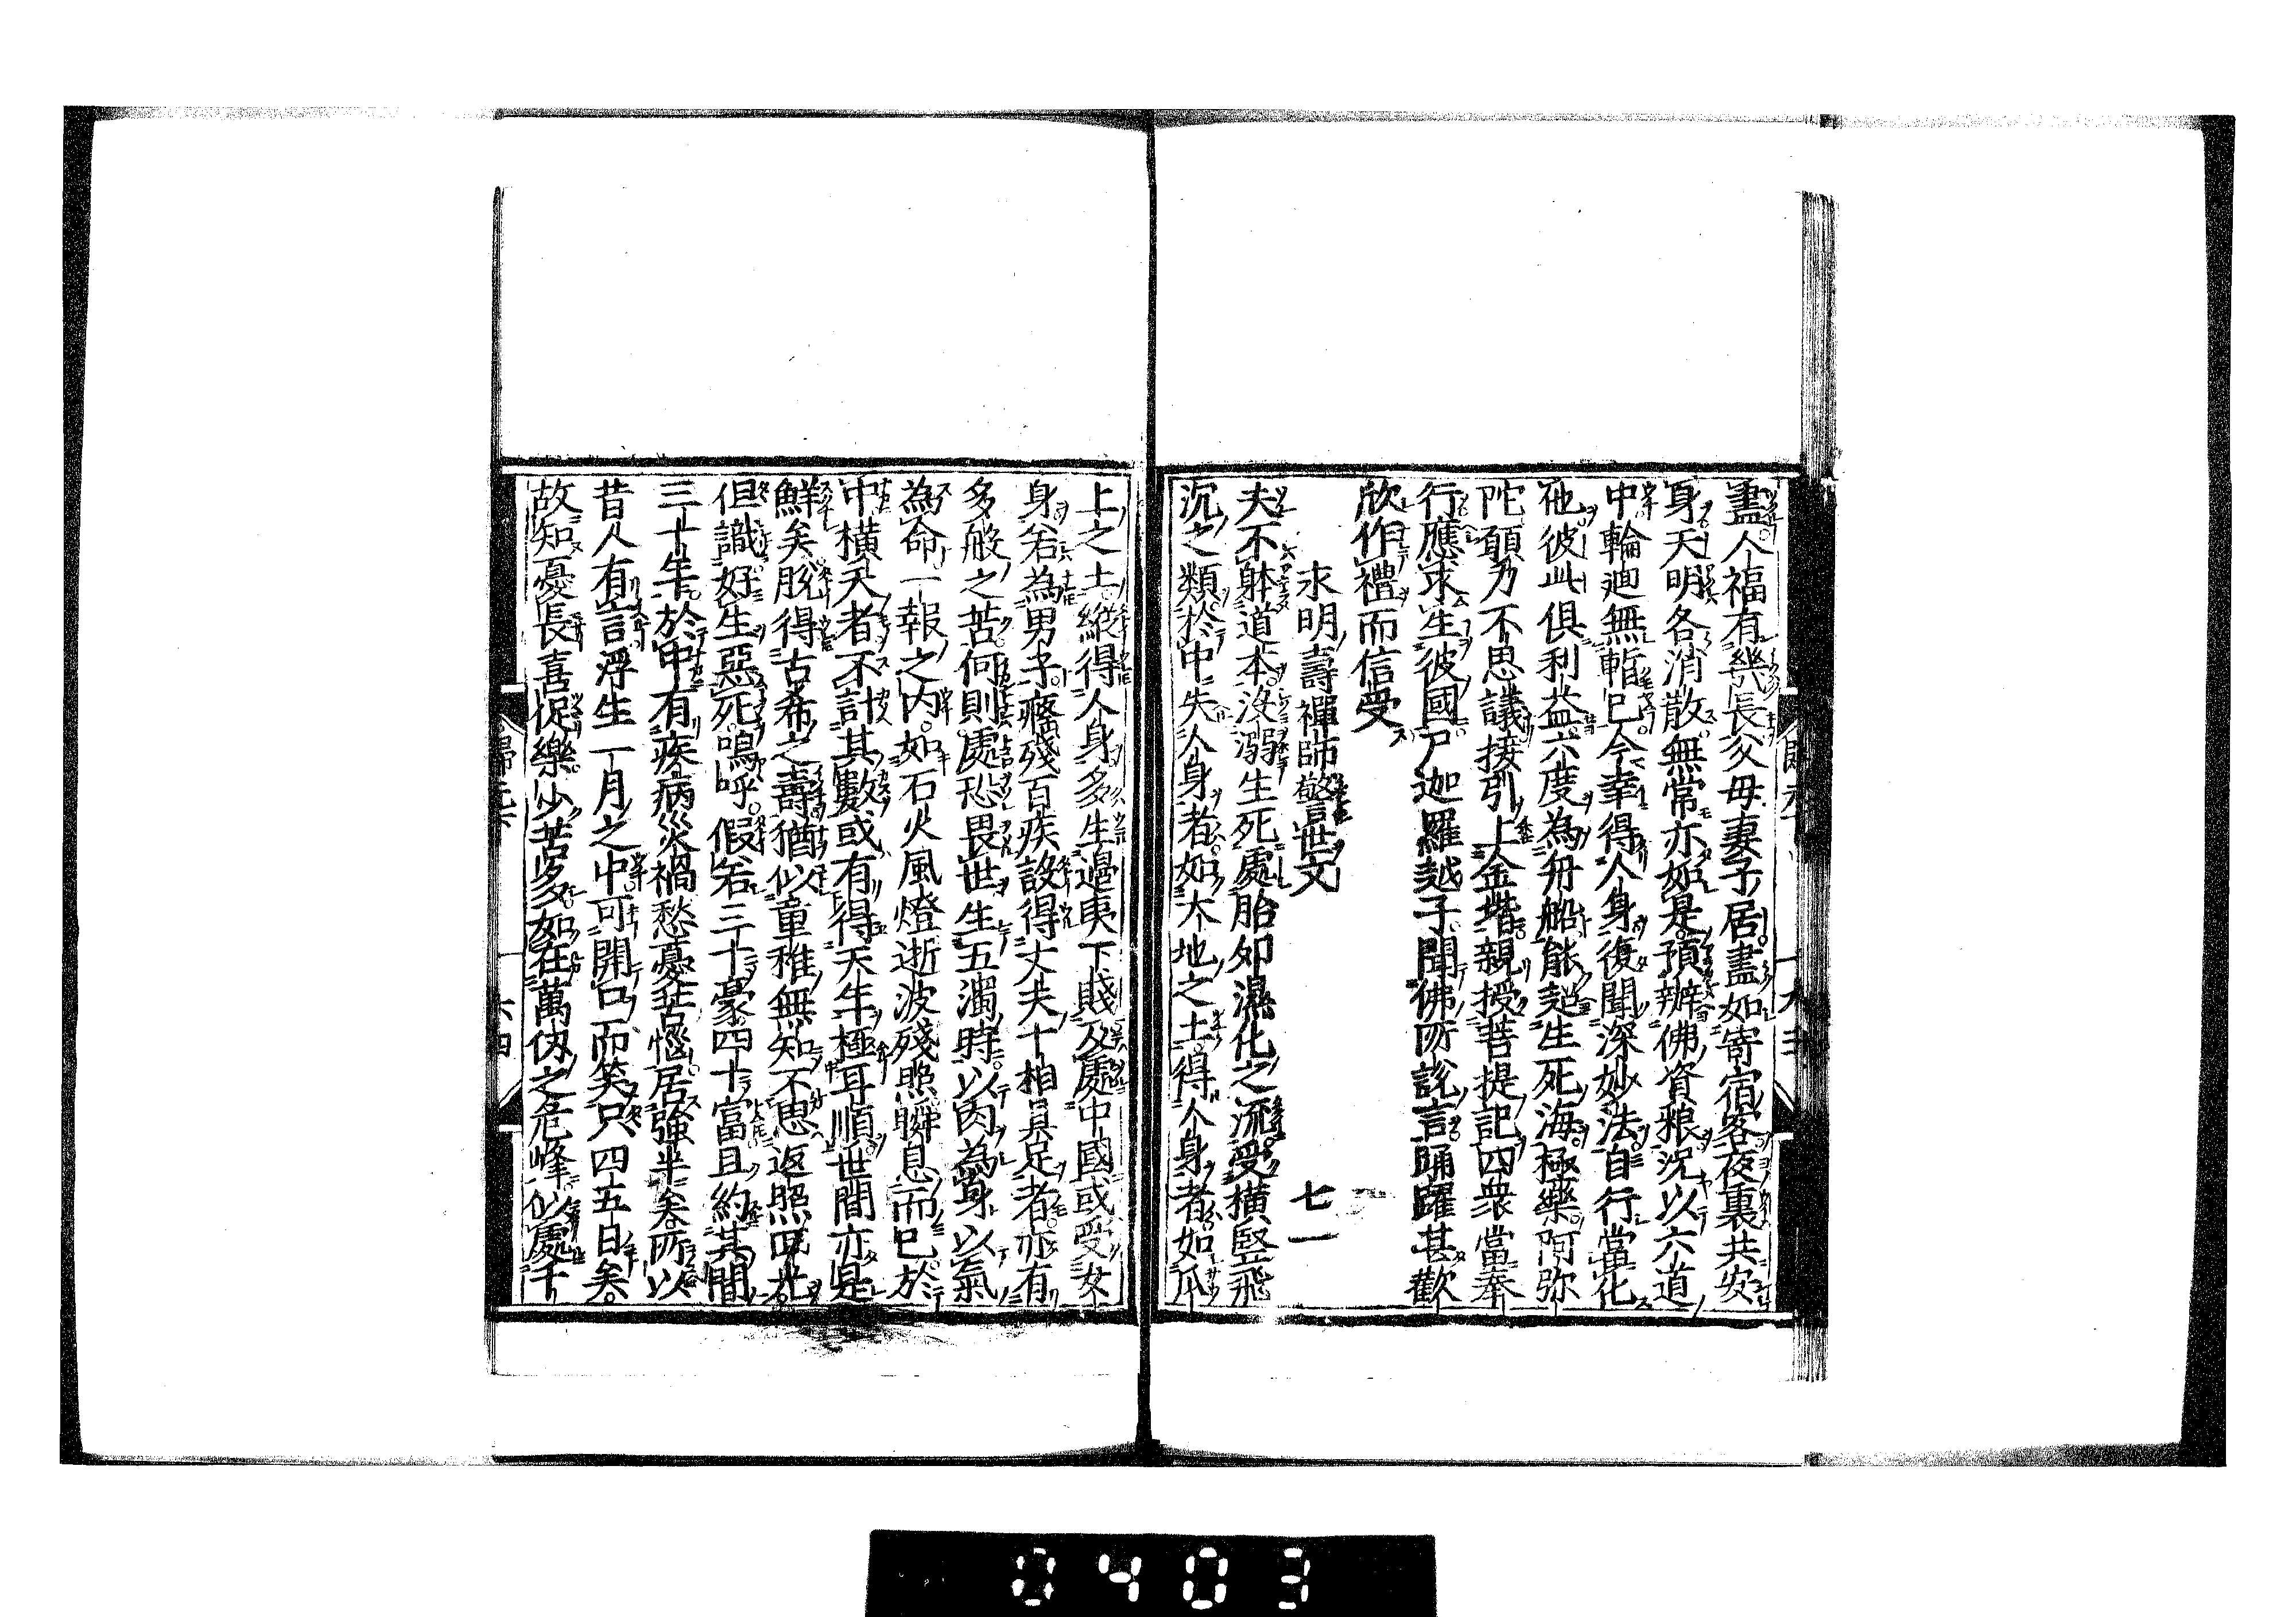 盡人福有幾長父母妻子居盡如寄宿客夜裏共安
身天明各消散無常亦如是預辦佛資粮況以六道
中輪廻無暫已今幸得人身復聞深妙法自行當化
他彼此俱利益六度為舟船能超生死海極樂阿弥
陀願乃不思議接引上金堦親授菩提記四衆當奉
行應求生彼國尸迦羅越子聞佛所說言踊躍甚歡
欣作禮而信受
永明壽禪師警世文 七一
夫不躰道本沒溺生死處胎卵濕化之流受橫竪飛
沉之類於中失人身者如大地之土得人身者如爪
上之土縱得人身多生邊夷下賤及處中國或受女
身若為男子癃殘百疾設得丈夫十相具足者亦有
多般之苦何則處恐畏世生五濁時以肉為身以氣
為命一報之內如石火風燈逝波殘照瞬息而已於
中橫夭者不計其數或有得天年極耳順世間亦是
鮮矣脫得古希之壽猶似童稚無知不思返照回光
但識好生惡死嗚呼假若三十豪四十富且約其間
三十年於中有疾病災禍愁憂苦惱居強半矣所以
昔人有言浮生一月之中可開口而笑只四五日矣
故知憂長喜促樂少苦多如在萬仭之危峰似處千
0403